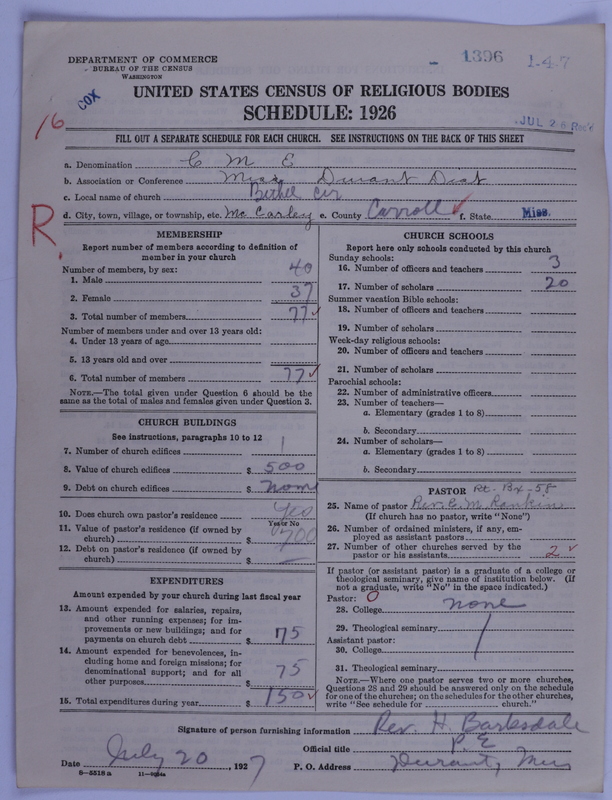 DEPARTMENT OF COMMERCE
BUREAU OF THE CENSUS
WASHINGTON
1396 1.4.7
COX
16
UNITED STATES CENSUS OF RELIGIOUS BODIES
SCHEDULE: 1926
JUL 26 Rec'd
FILL OUT A SEPARATE SCHEDULE FOR EACH CHURCH. SEE INSTRUCTIONS ON THE BACK OF THIS SHEET
a. Denomination C M E
b. Association or Conference Miss Durant Dist
c. Local name of church Bethel Cir
d. City, town, village, or township, etc. Mc Carley e. County Carroll f. State Miss.
R.
MEMBERSHIP
Report number of members according to definition of
member in your church
Number of members, by sex:
1. Male 40
2. Female 37
3. Total number of members 77
Number of members under and over 13 years old:
4. Under 13 years of age
5. 13 years old and over
6. Total number of members 77
NOTE.—The total given under Question 6 should be the
same as the total of males and females given under Question 3.
CHURCH BUILDINGS
See instructions, paragraphs 10 to 12
7. Number of church edifices 1
8. Value of church edifices $ 500
9. Debt on church edifices $ none
10. Does church own pastor's residence Yes
Yes or No
11. Value of pastor's residence (if owned by
church) $ 700
12. Debt on pastor's residence (if owned by
church) $ —
EXPENDITURES
Amount expended by your church during last fiscal year
13. Amount expended for salaries, repairs,
and other running expenses; for im-
provements or new buildings; and for
payments on church debt $ 75
14. Amount expended for benevolences, in-
cluding home and foreign missions; for
denominational support; and for all
other purposes $ 75
15. Total expenditures during year $ 150
CHURCH SCHOOLS
Report here only schools conducted by this church
Sunday schools:
16. Number of officers and teachers 3
17. Number of scholars 20
Summer vacation Bible schools:
18. Number of officers and teachers
19. Number of scholars
Week-day religious schools:
20. Number of officers and teachers
21. Number of scholars
Parochial schools:
22. Number of administrative officers
23. Number of teachers—
a. Elementary (grades 1 to 8)
b. Secondary
24. Number of scholars—
a. Elementary (grades 1 to 8)
b. Secondary
PASTOR Rt- Bx-58
25. Name of pastor Rev. C. M. Rankin
(If church has no pastor, write "None")
26. Number of ordained ministers, if any, em-
ployed as assistant pastors
27. Number of other churches served by the
pastor or his assistants 2
If pastor (or assistant pastor) is a graduate of a college or
theological seminary, give name of institution below. (If
not a graduate, write "No" in the space indicated.)
Pastor: 0
28. College none
29. Theological seminary
Assistant pastor:
30. College
31. Theological seminary
NOTE.—Where one pastor serves two or more churches,
Questions 28 and 29 should be answered only on the schedule
for one of the churches; on the schedules for the other churches,
write "See schedule for church."
Signature of person furnishing information Rev. H. Barksdale
Official title P. E
Date July 20, 1927 P. O. Address Durant, Miss
8-5518 a